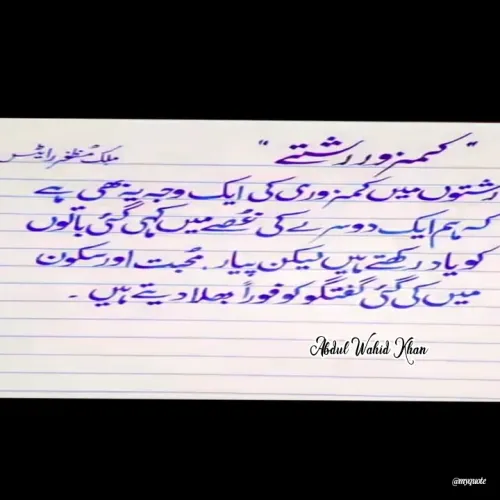 "کمزور رشتے"
ملک مظفر رائٹس
رشتوں میں کمزوری کی ایک وجہ یہ بھی ہے
کہ ہم ایک دوسرے کی غصے میں کہی گئی باتوں
کو یاد رکھتے ہیں لیکن پیار . محبت اور سکون
میں کی گئی گفتگو کو فوراً بھلا دیتے ہیں ۔
Abdul Wahid Khan
@myquote